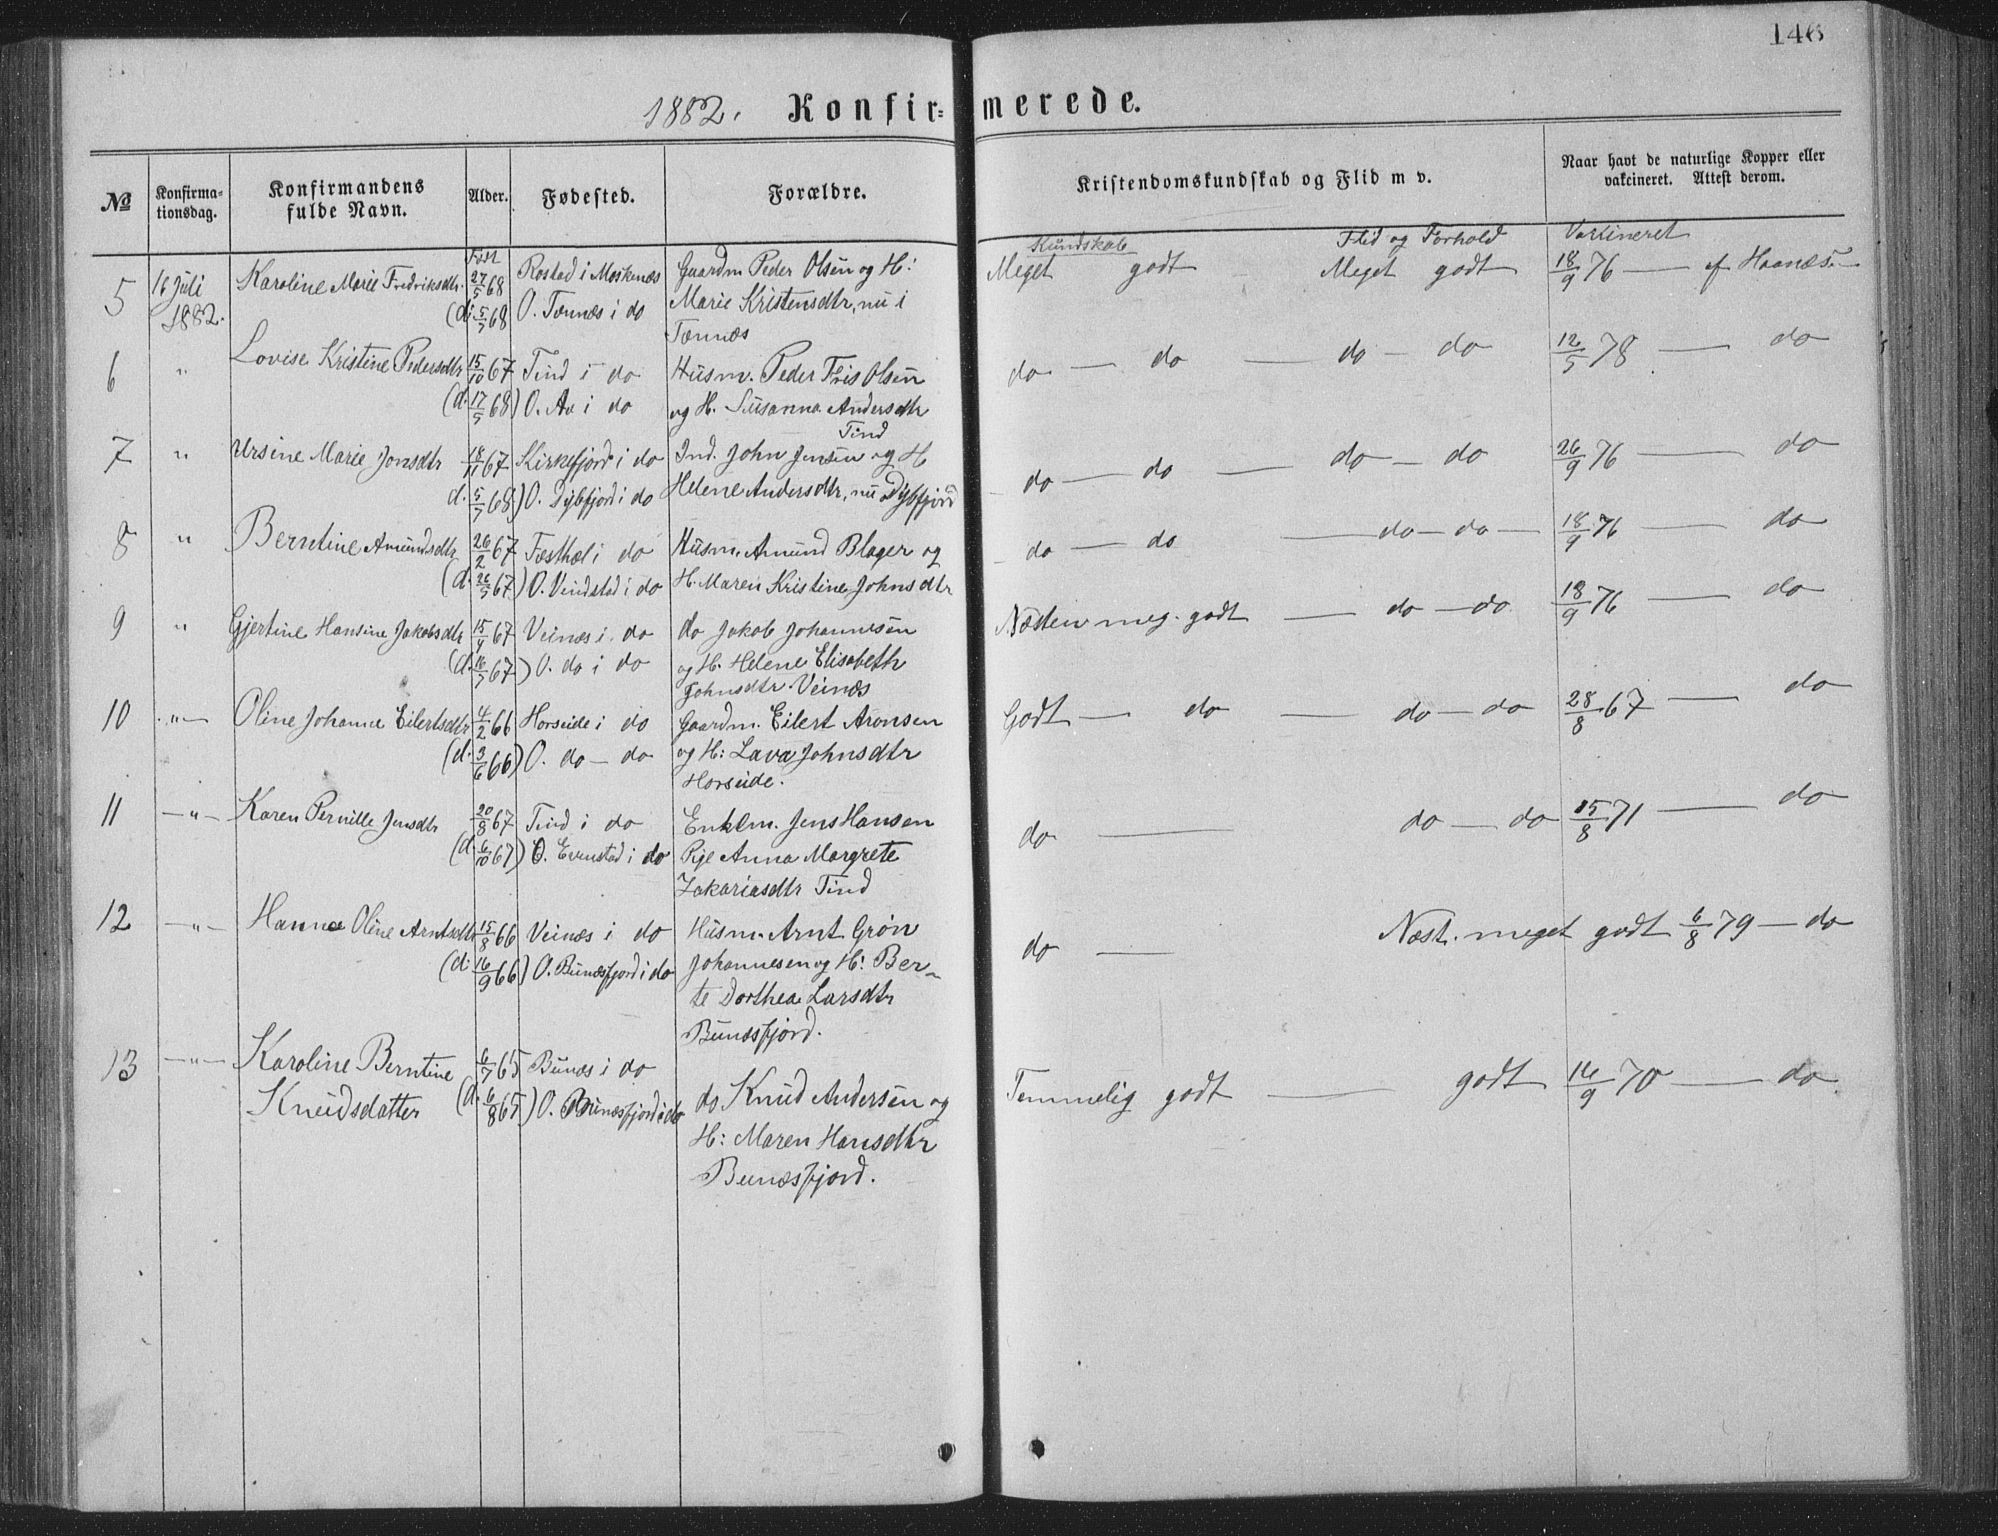 146
1882. Konfir=merede.
№ Konfirma-tionsdag. Konfirmandens fulde Navn. Alder. Fødested. Forældre. Kristendomskundskab og Flid m v. Naar havt de naturlige Kopper eller vakcineret. Attest derom.
Født Kundskab Flid og Forhold Vaccineret
5 16 Juli Karoline Marie Fredriksdtr. 27/5 68 Rostad i Moskenæs Gaardm Peder Olsen og H: Meget godt Meget godt 18/9 76 — af Haanæs.
1882. (d: 5/7 68 O. Tennæs i do Marie Kristensdtr, nu i
Tennæs
6 " Lovise Kristine Pedersdtr 15/10 67 Tind i do Husm. Peder Fris Olsen do — do — do — do 12/5 78 — do
(d. 17/5 68) O. Aa i do og H. Susanna Andersdtr
Tind
7 " Ursine Marie Jonsdtr 18/11 67 Kirkefjord i do Ind. John Jensen og H do — do — do — do 26/9 76 — do
d. 5/7 68) O. Dybfjord i do Helene Andersdtr, nu Dybfjord
8 " Berntine Amundsdtr 26/2 67 Festhæl i do Husm. Amund Blager og do — do — do — do — 18/9 76 — do
(d. 26/5 67) O. Vindstad i do H. Maren Kristine Johnsdtr
9 " Gjertine Hansine Jakobsdtr 15/4 67 Veinæs i do do Jakob Johannesen Næsten meg. godt — do — do 18/9 76 — do
(d. 16/7 67) O. do i do og H. Helene Elisabeth
Johnsdtr Veinæs
10 — " — Oline Johanne Eilertsdtr 4/2 66 Horseide i do Gaardm. Eilert Aronsen Godt — do — do — do 28/8 67 — do
(d. 3/6 66) O. do — do og H: Lava Johnsdtr
Horseide.
11 — " — Karen Pernille Jensdtr 20/8 67 Tind i do Enkem. Jens Hansen do — do — do 15/8 71 — do
(d. 6/10 67) O. Evenstad i do Pige Anna Margrete
Zakariasdtr Tind
12 — " — Hanna Oline Arntsdtr 15/8 66 Veinæs i do Husm. Arnt Grøn do — Næst. meget godt 6/8 79 — do
(d. 16/9 66) O. Bunæsfjord i do Johannesen og H: Ber-
te Dorthea Larsdtr
Bunæsfjord.
13 — " — Karoline Berntine 6/7 65 Bunæs i do
Knudsdatter (d. 6/8 65) O. Bunæsfjord i do do Knud Andersen og Temmelig godt — godt 16/9 70 — do
H: Maren Hansdtr
Bunæsfjord.